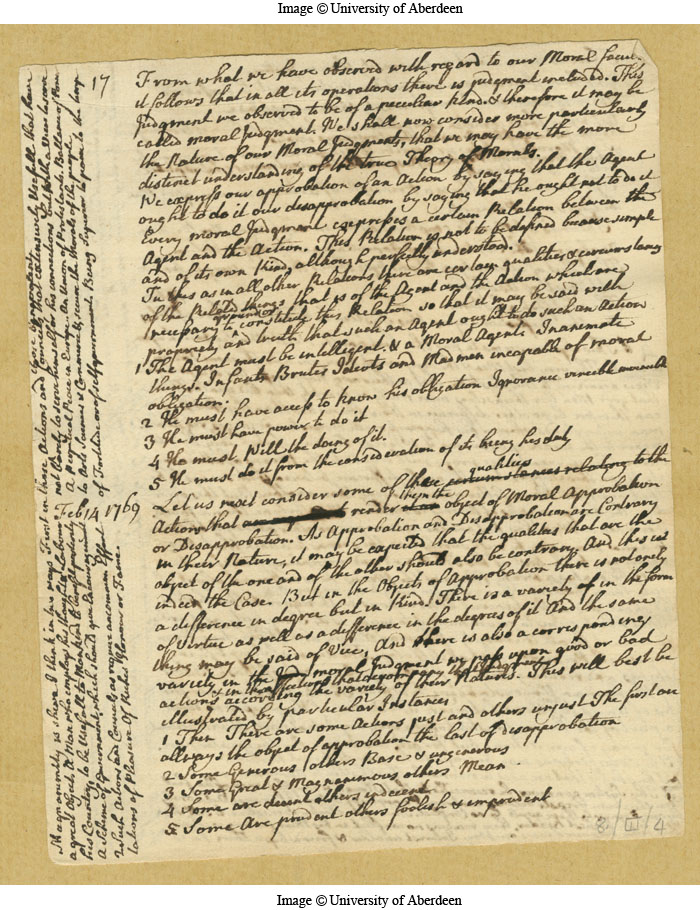 Image © University of Aberdeen
17
From what we have observed with regard to our Moral facu
it follows that in all its operations there is judgment included. This
Judgment we observed to be of a peculiar kind. & therefore it may be
called moral Judgment. We shall now consider more particularly
the Nature of our Moral Judgments, that we may have the more
distinct understanding of the true Theory of Morals.
We express our approbation of an Action by saying that the Agent
ought to do it our disapprobation by saying that he ought not to do it
Every moral Judgment expresses a certain Relation between the
Agent and the Action. This Relation is not to be defined because simple
and of its own kind, although perfectly understood.
In this as in all other Relations there are certain qualities & circumstances
of the Related things that is of the Agent and the Action which are
necessary to constitute this Relation so that it may be said with
propriety and truth that such an Agent ought to do such an Action
1 The Agent must be intelligent & a Moral Agent. Inanimate
things. Infants Brutes Idiots and Madmen incapable of moral
obligation.
2 He must have access to know his obligation Ignorance vincible invincible
3 He must have power to do it
4 He must Will the doing of it.
5 He must do it from the consideration of its being his duty
Feb 14 1769
qualities
Let us next consider some of the circumstances relating to the
Actions that render them the object of Moral Approbation
or Disapprobation. As Approbation and Disapprobation are Contrary
in their Nature, it may be expected that the qualities that are the
object of the one and of the other should also be contrary. And this is
indeed the Case. But in the Objects of Approbation there is not only
a difference in degree but in Kind. There is a variety in the form
of Virtue as well as a difference in the degrees of it And the same
thing may be said of Vice, And there is also a correspondent
variety in the moral judgment we pass upon good or bad
& in the affections that accompany these judgments
actions according the variety of their Natures. This will best be
illustrated by particular Instances
1 Then There are some Actions just and others unjust The first are
allways the object of approbation the last of disapprobation
2 Some Generous others Base & ungenerous
3 Some Great & Magnanimous others Mean
4 Some are decent others indecent
5 Some Are prudent others foolish & imprudent
Magnanimity is shewn I think in two ways First in those Actions and Counsels that
a great Object. A Man who employs his thoughts & Labour not barely to
his Country to be Usefull to Mankind
a Scheme of Government, which should give Encouragement to Arts Sciences & Commerce, secure the Morals of the people
2 Such Actions and Counsels as require uncommon Effort of Fortitude or of Self government. Being Superior to pain to the
lations of Pleasure of Riches Honour or Fame.
Image © University of Aberdeen